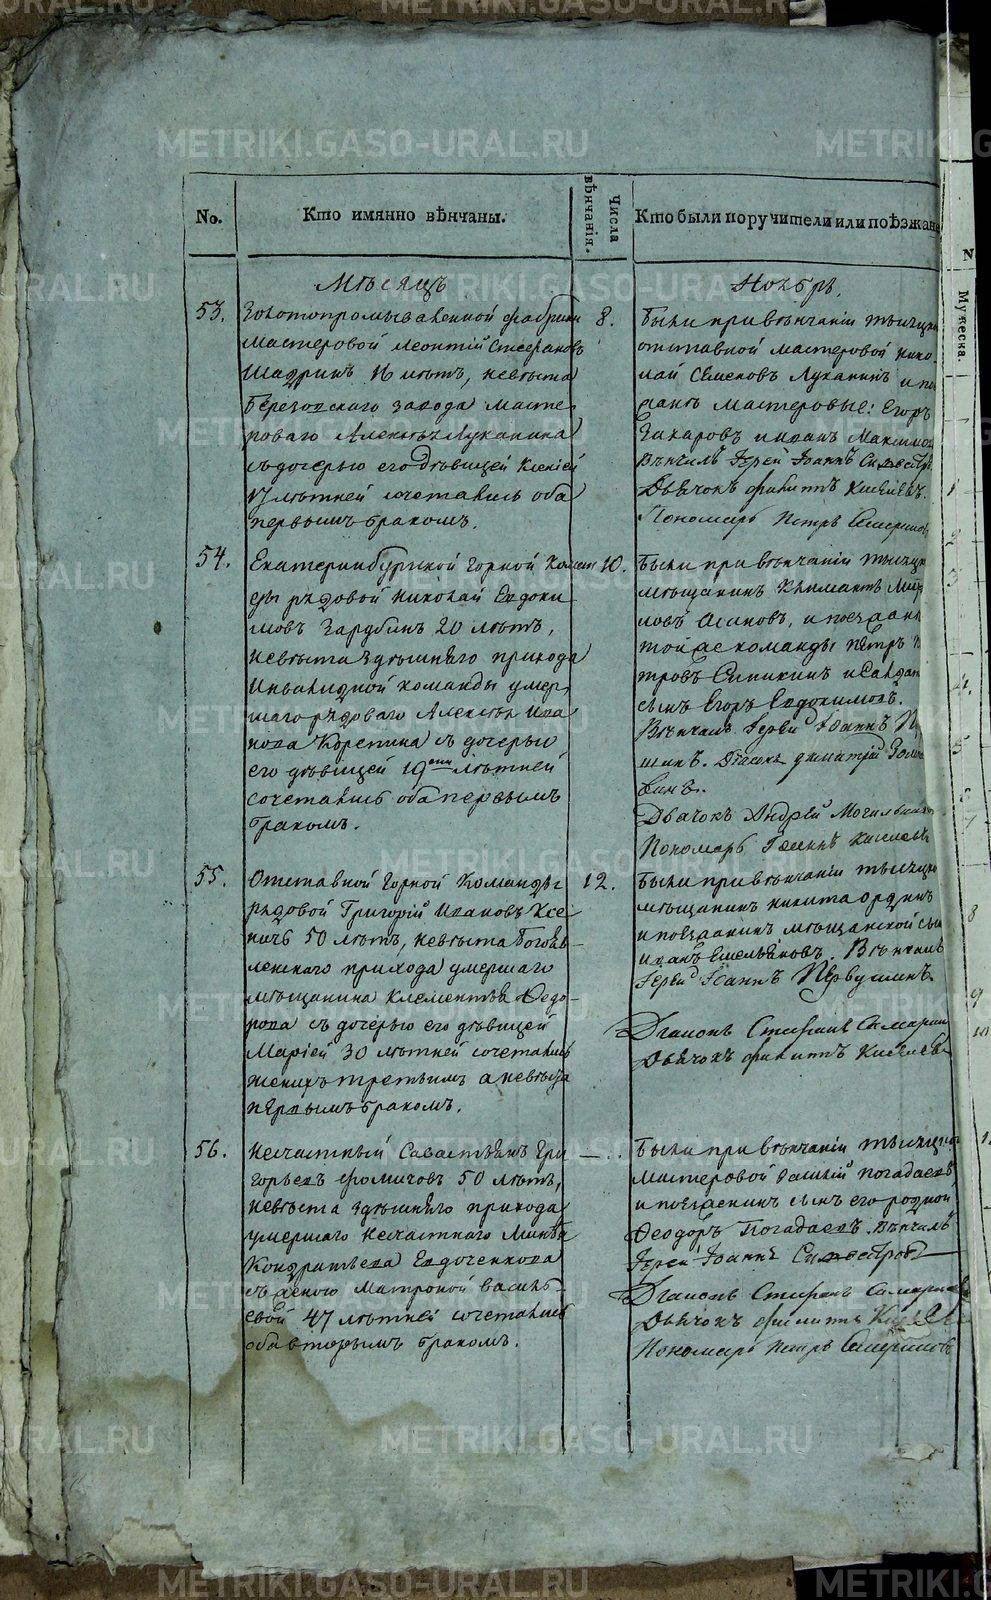 No.
Кто имянно вѣнчаны.
Числа вѣнчанія.
Кто были поручители или поѣзжане
Мужеска.
Мѣсяцъ
Ноябрь.
53.
Золотопромываленной фабрики
мастеровой Леонтій Стефановъ
Шадринъ 18 лѣтъ, невѣста
Березовскаго завода масте-
роваго Алексѣя Луканина
съ дочерью его дѣвицей Ксеніей
17 лѣтней сочетались оба
первымъ бракомъ.
8.
Были при вѣнчаніи тысяцк
отставной мастеровой Нико-
лай Семеновъ Луканинъ и по
мастеровые: Егоръ
Захаровъ и Иванъ Максимо
Вѣнчалъ Іерей Іоаннъ Силвестр
Дьячокъ Филиппъ Киселевъ.
Пономарь Петръ
54.
Екатеринбургской Горной Коман
ды рядовой Николай Евдоки-
мовъ 20 лѣтъ,
невѣста здѣшняго прихода
Инвалидной команды умер-
шаго рядоваго Алексѣя Ива
нова Корепина съ дочерью
его дѣвицей 19 лѣтней
сочетались оба первымъ
бракомъ.
10.
Были при вѣнчаніи тысяцк
мѣщанинъ Климантъ
новъ Осиповъ, и поезжан
той же команды Петръ
тровъ и Салдат
сынъ Егоръ Евдокимовъ.
Вѣнчалъ Іерей Іоаннъ П
шинъ. Діаконъ Димитрій
винъ.
Дьячокъ Андрей
Пономарь Іоаннъ Киселевъ
55.
Отставной Горной Команды
рядовой Григорій Ивановъ
50 лѣтъ, невѣста Богояв-
ленскаго прихода умершаго
мѣщанина Клементья Федо-
рова съ дочерью его дѣвицей
Маріей 30 лѣтней сочетались
женихъ третьимъ а невѣста
первымъ бракомъ.
12.
Были при вѣнчаніи тысяцкій
мѣщанинъ Никита
и поезжанинъ мѣщанской сын
Иванъ Емельяновъ. Вѣнчалъ
Іерей Іоаннъ Первушинъ.
Діаконъ Стефанъ
Дьячокъ Филиппъ Киселевъ
56.
Несчастный Савастьянъ Гри
горьевъ Фомичовъ 50 лѣтъ,
невѣста здѣшняго прихода
умершаго несчастнаго
Кондратьева
съ женою Матроной Василь-
евой 47 лѣтней сочетались
оба вторымъ бракомъ.
Были при вѣнчаніи тысяцкой
мастеровой Погадаевъ,
и поезжанинъ сынъ его родной
Феодоръ Погадаевъ. Вѣнчалъ
Іерей Іоаннъ Силвестровъ
Діаконъ Стефанъ
Дьячокъ Филиппъ
Пономарь Петръ
METRIKI.GASO-URAL.RU